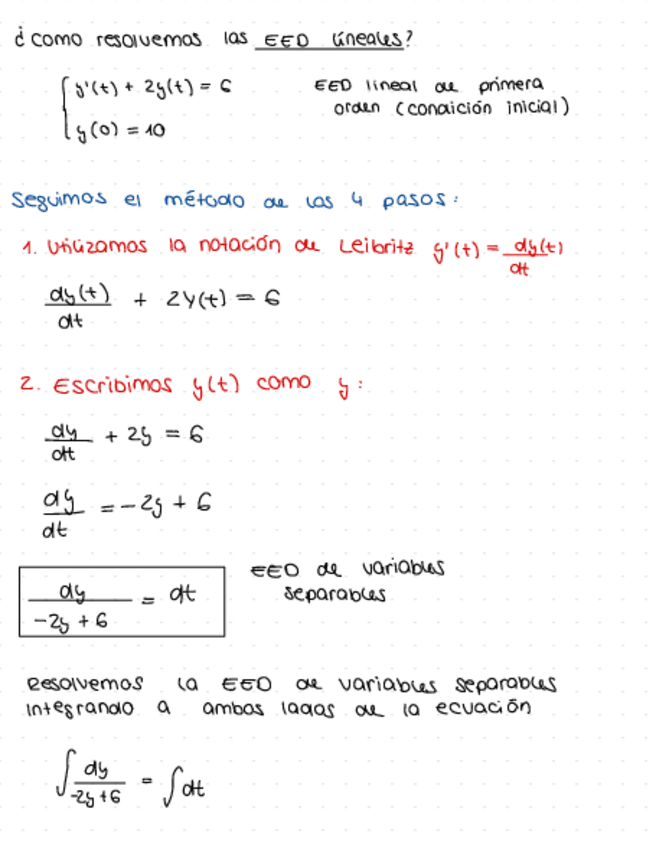 ¿como resolvemos las EED lineales?
y'(t) + 2y(t) = 6
y(0) = 10
EED lineal de primera
orden (condición inicial)
Seguimos el método de los 4 pasos:
1. Utilizamos la notación de Leibritz y'(t) = dy(t)/dt
dy(t)/dt + 2y(t) = 6
2. Escribimos y(t) como y:
dy/dt + 2y = 6
dy/dt = -2y + 6
dy/(-2y + 6) = dt
EED de variables
separables
Resolvemos la EED de variables separables
integrando a ambos lados de la ecuación
∫ dy/(-2y + 6) = ∫ dt